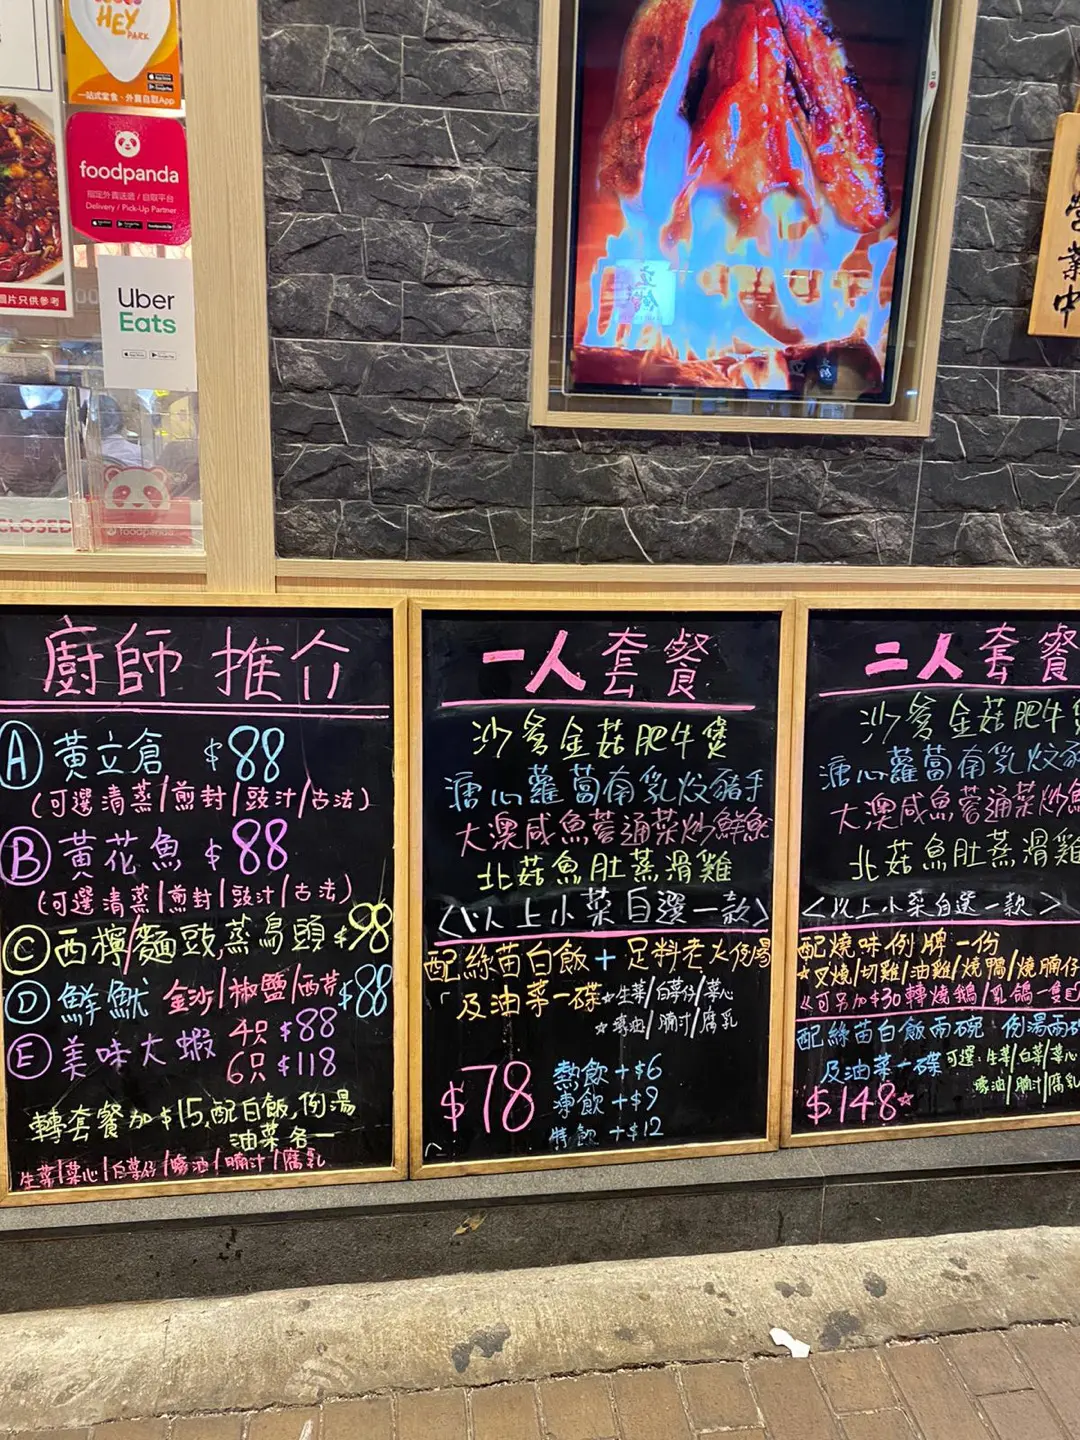 HEY
PARK
一站式堂食、外賣自取App
foodpanda
指定外賣速遞 / 自取平台
Delivery / Pick-Up Partner
圖片只供參考
Uber
Eats
CLOSED
foodpanda
營業中
廚師推介
A 黄立倉 $88
(可選清蒸/煎封/豉汁/古法)
B 黃花魚 $88
(可選清蒸/煎封/豉汁/古法)
C 西檸/麵豉蒸烏頭 $98
D 鮮魷 金沙/椒鹽/西芹 $88
E 美味大蝦 4只 $88
6只 $118
轉套餐加$15,配白飯,例湯
油菜各一
生菜/菜心/白菜仔/蠔油/腩汁/腐乳
一人套餐
沙爹金菇肥牛煲
溏心蘿蔔南乳炆豬手
大澳咸魚蓉通菜炒鮮魷
北菇魚肚蒸滑雞
<以上小菜自選一款>
配絲苗白飯+足料老火例湯
及油菜一碟 ☆生菜/白菜仔/菜心
☆蠔油/腩汁/腐乳
$78
熱飲+$6
凍飲+$9
特飲+$12
二人套餐
沙爹金菇肥牛煲
溏心蘿蔔南乳炆豬
大澳咸魚蓉通菜炒鮮
北菇魚肚蒸滑雞
<以上小菜自選一款>
配燒味例牌一份
☆叉燒/切雞/油雞/燒鴨/燒腩仔
《可另加$30轉燒鵝/乳鴿一隻
配絲苗白飯兩碗 例湯兩
及油菜一碟 可選:生菜/白菜/菜心
蠔油/腩汁/腐乳
$148☆